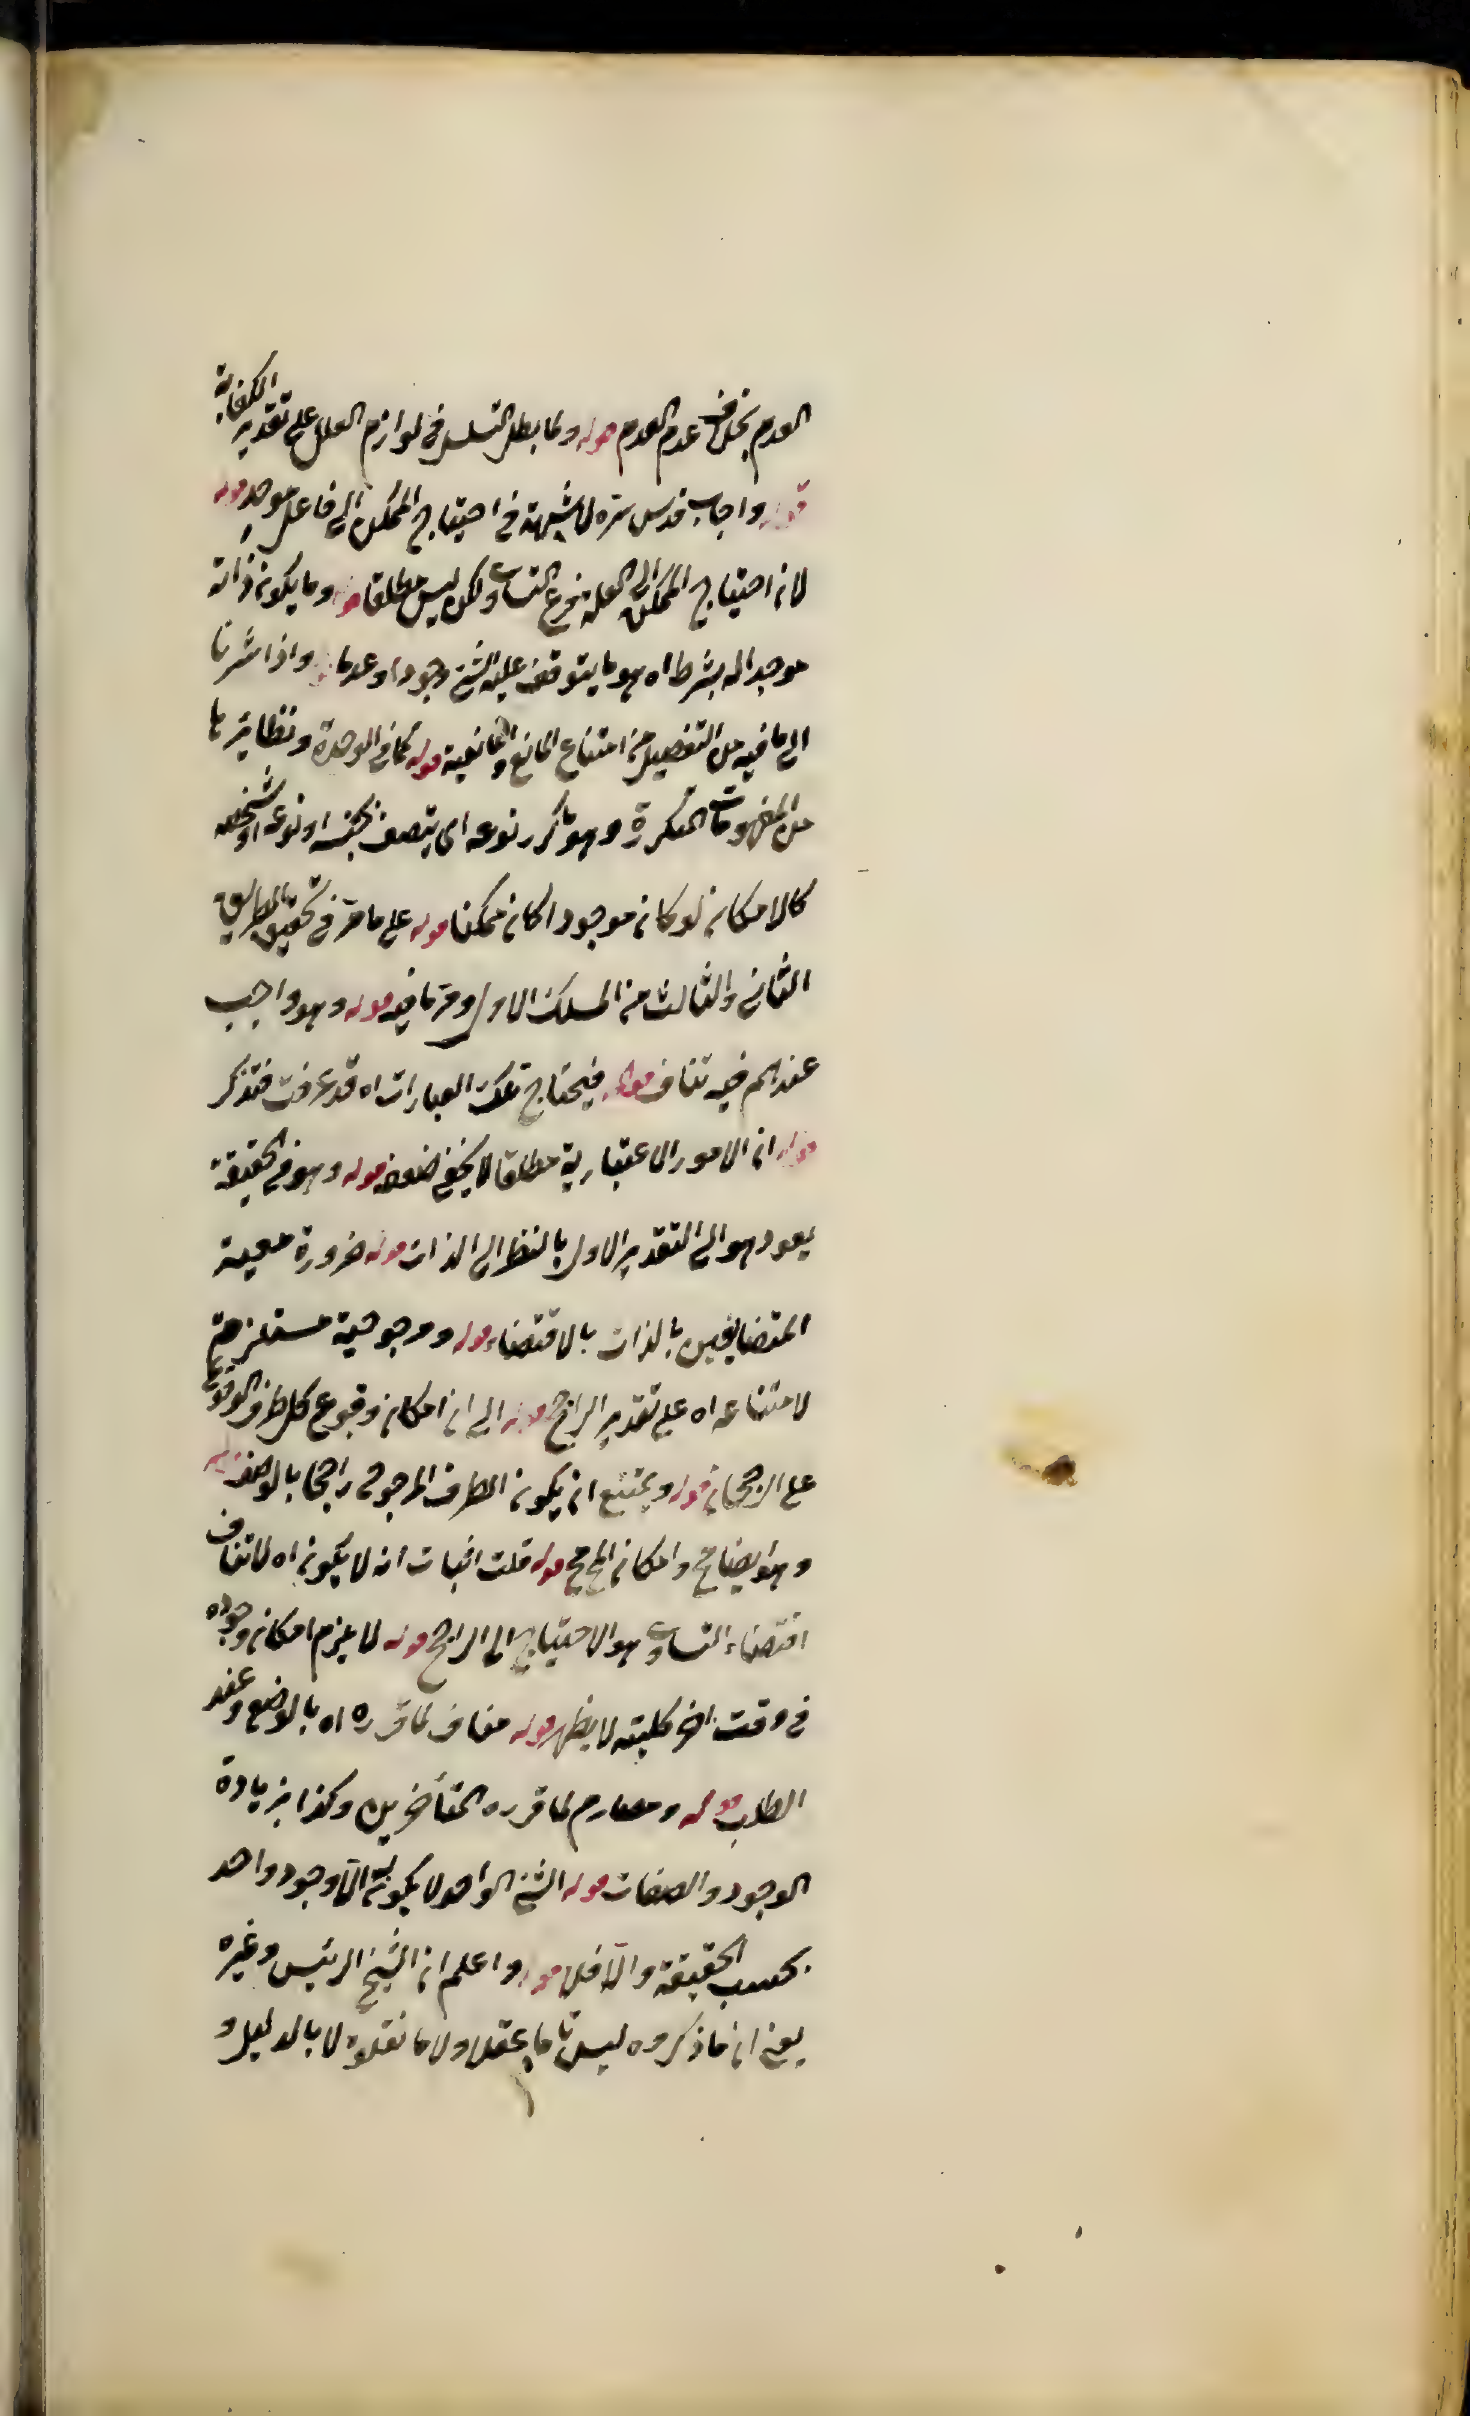 العدم بخلاف عدم العدم قوله ولما بطل التسلسل في لوازم العلل على تقدير الكفاية
قوله واجاب قدس سره لا شبهة في احتياج الممكن الى فاعل موجد قوله
لان احتياج الممكن الى العلة فرع التساوي ولكن ليس مطلقا قوله وما يكون ذاته
موجدا له بشرط اه هو ما يتوقف عليه الشيء وجودا وعدما واذا اشرنا
الى ما فيه من التفصيل من امتناع المانع والمانعية قوله كما في الوحدة ونظائرها
من المفهومات المتكررة وهو ما تكرر نوعه اى يتصف بجنسه او نوعه او شخصه
كالامكان لو كان موجودا كان ممكنا قوله على ما مر في تحقيق الطريق
الثاني والثالث من المسلك الاول ومر ما فيه قوله وهو واجب
عندهم فيه تناف قوله فيحتاج تلك العبارات اه قد عرفت فتذكر
قوله ان الامور الاعتبارية مطلقا لا يخفى ضعفه قوله وهو في الحقيقة
يعود هو الى التقدير الاول بالنظر الى الذات قوله ضرورة معية
المتضايفين بالذات بالاقتضاء قوله ومرجوحية مستلزمة
لامتناعه اه على تقدير الراجح قوله الى ان امكان وقوع كل طرف الوقوع
على الرجحان قوله ويمتنع ان يكون الطرف المرجوح راجحا بالوصف
وهو ايضا مح وامكان المح مح قوله قلت اثبات انه لا يكون اه لا تناف
اقتضاء التساوي هو الاحتياج الى الراجح قوله لا يلزم امكان وجوده
في وقت اخر كليته لا يظهر قوله مناف لما قرره اه بالوضع وعند
الطلب قوله ومصادم لما قرره المتأخرين وكذا بزيادة
الوجود والصفات قوله الشيء الواحد لا يكون له الا وجود واحد
بحسب الحقيقة والا فلا قوله واعلم ان الشيخ الرئيس وغيره
يعني ان ما ذكروه ليس تاما عقلا ولا ما نقلوه لا بالدليل و